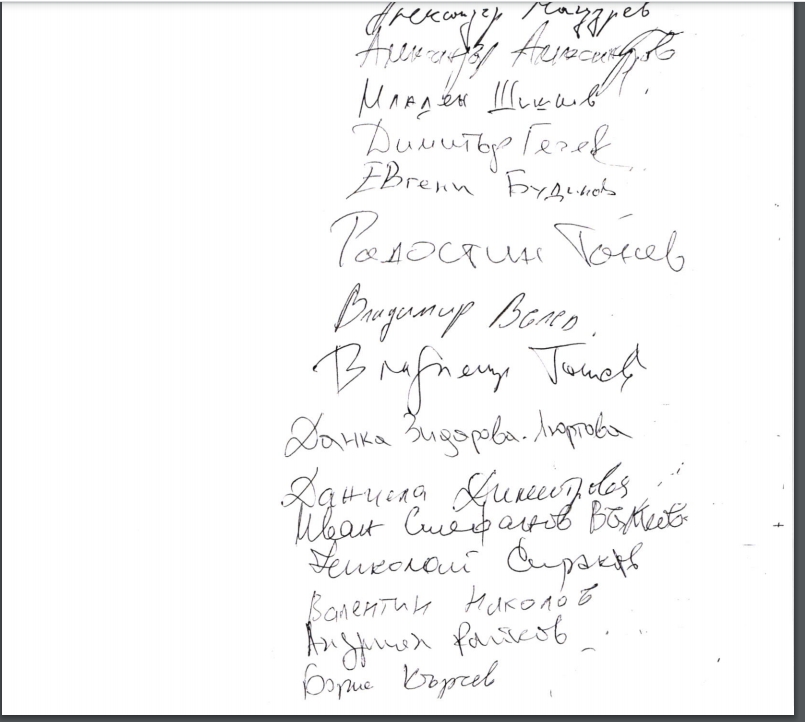 Александър
Александър Александров
Младен Шишков
Димитър Гечев
Евгени Будинов
Радостин Тонев
Владимир Вълев
Владимир Тошев
Данка Зидарова-Люртова
Даниела Димитрова
Иван Стефанов Важиев
Николай Сираков
Валентин Николов
Андриян Райков
Борис Кърчев